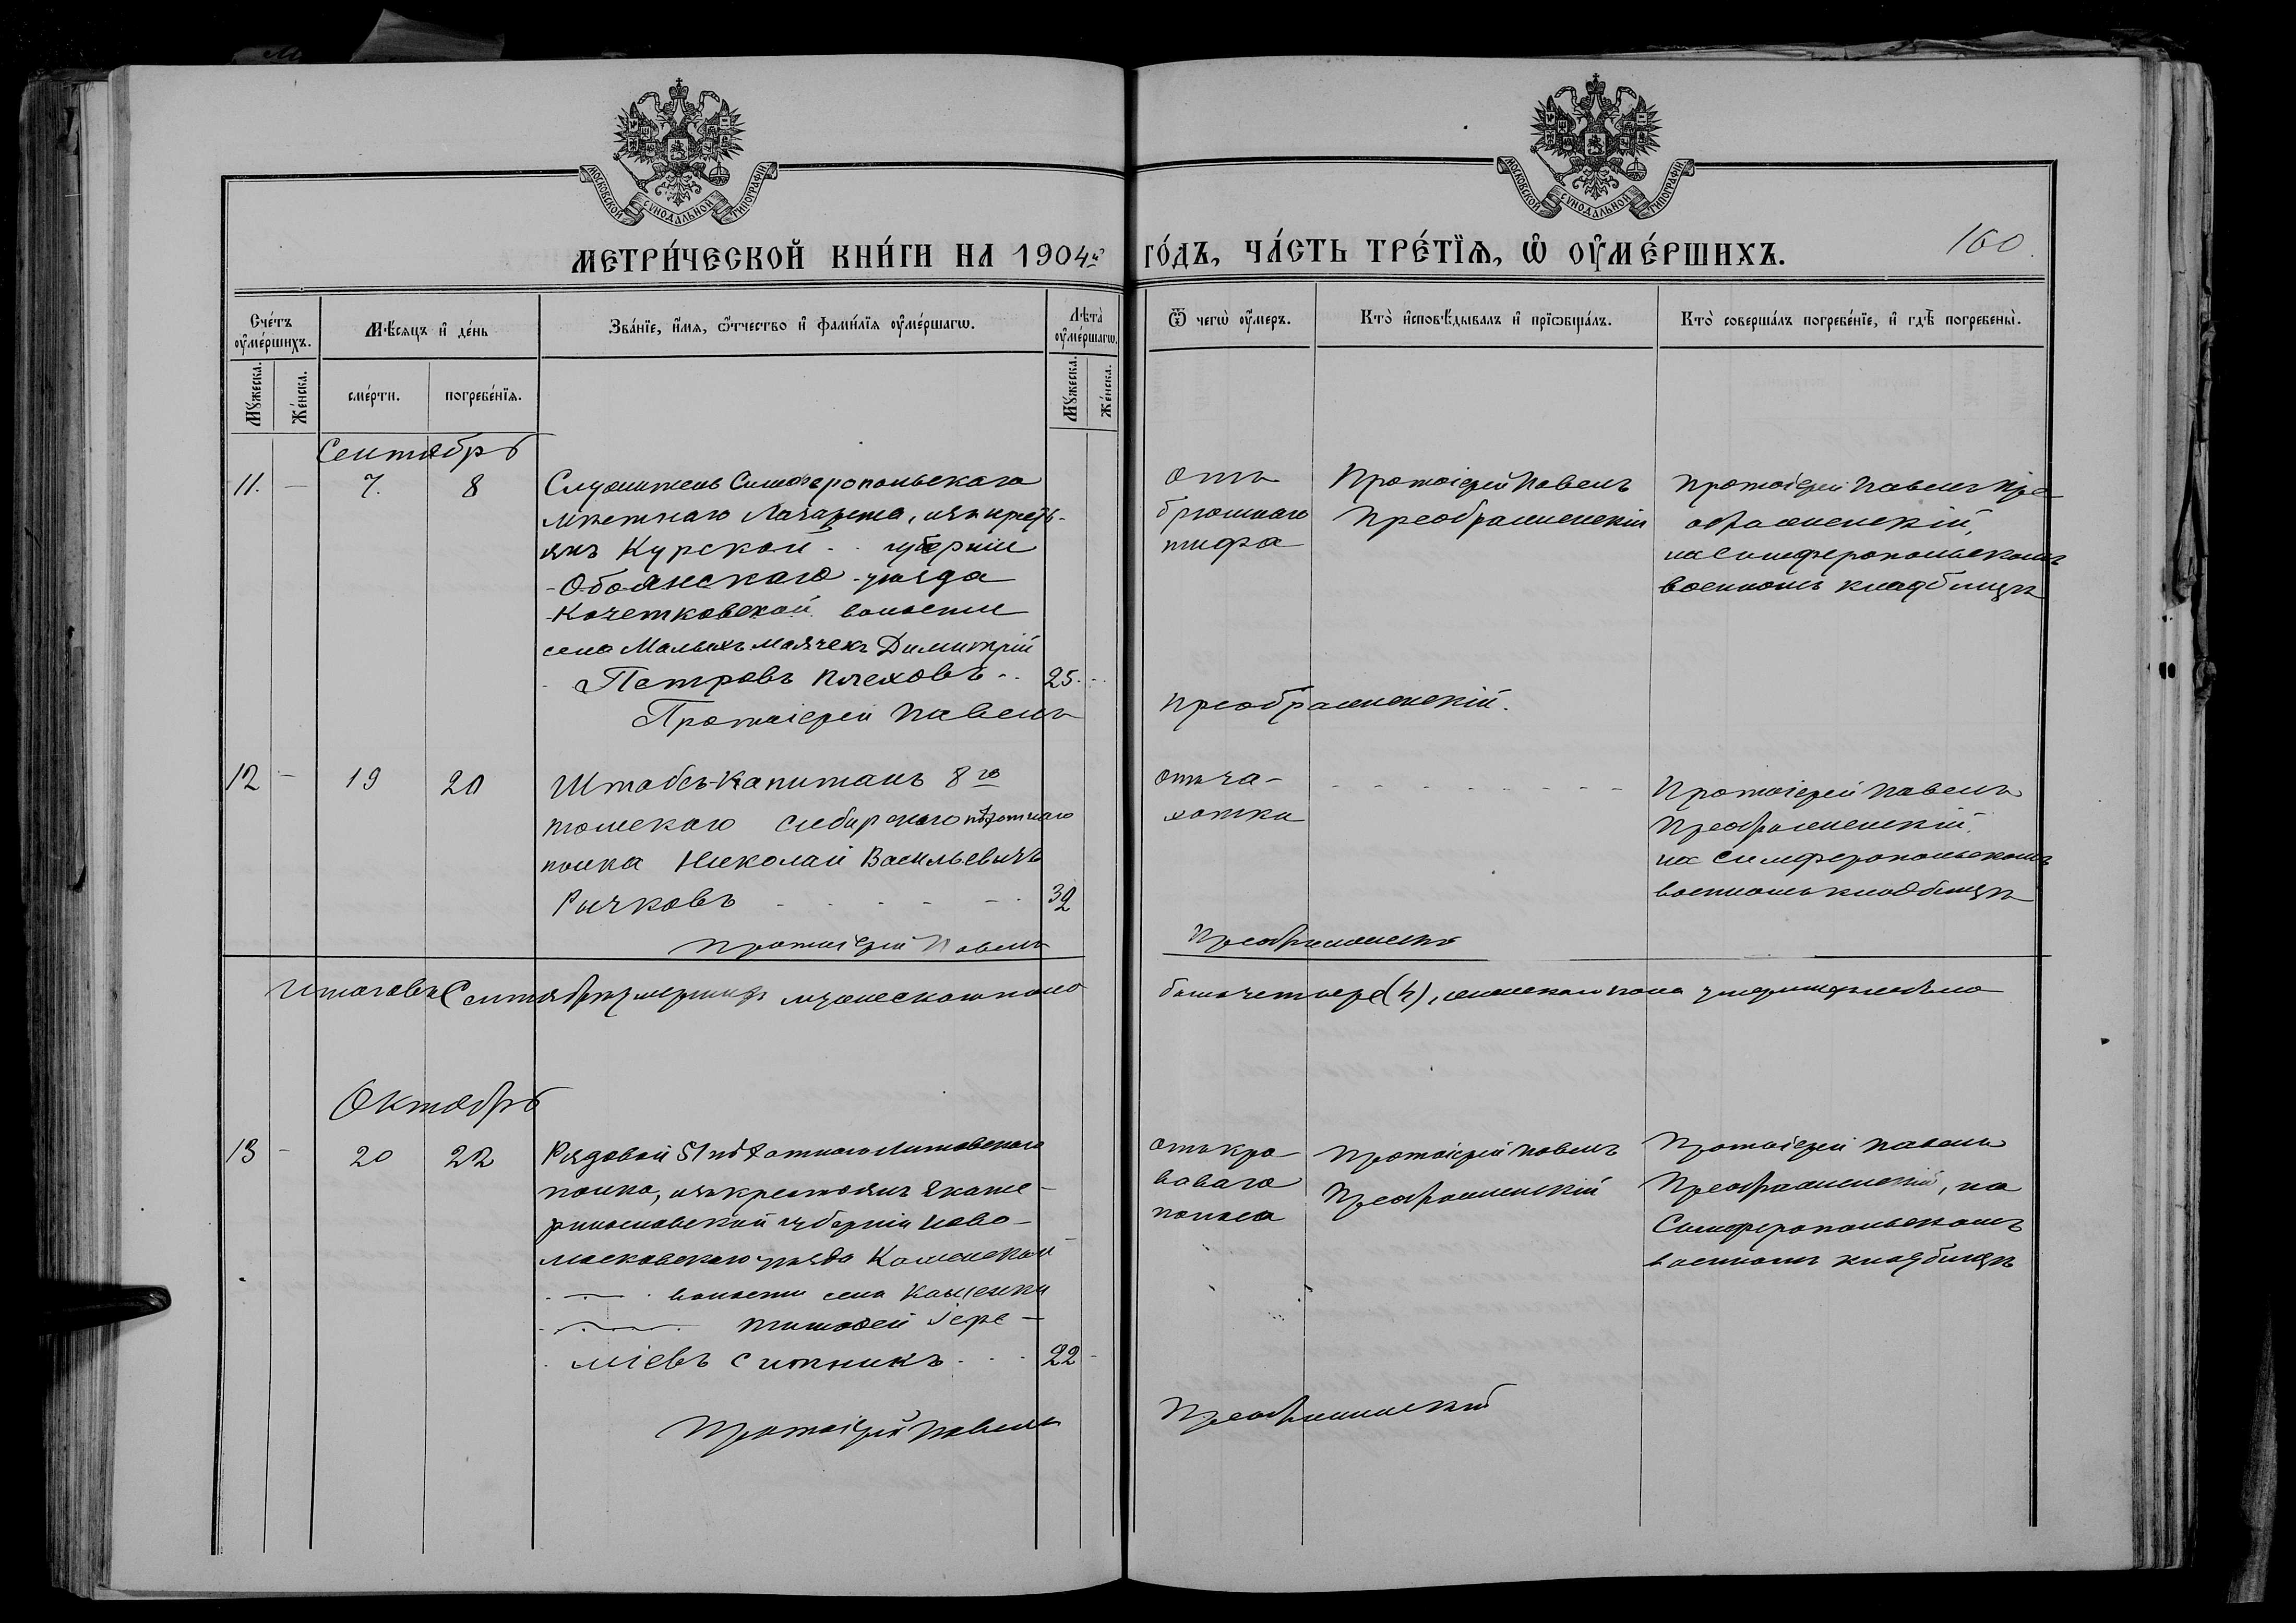 МОСКОВСКОЙ СѴНОДАЛЬНОЙ ТИПОГРАФІИ
МОСКОВСКОЙ СѴНОДАЛЬНОЙ ТИПОГРАФІИ
МЕТРИ́ЧЕСКОЙ КНИ́ГИ НА 1904й ГО́ДЪ, ЧА́СТЬ ТРЕ́ТЇѦ, Ѡ҆ ОУ҆МЕ́РШИХЪ.
160
Сче́тъ оу҆ме́ршихъ.
Мꙋ́жеска.
Же́нска.
Мѣ́сяцъ и҆ де́нь
сме́рти.
погребе́нїѧ.
Зва́нїе, и҆́мѧ, ѻ҆́тчество и҆ фамилїѧ оу҆ме́ршагѡ.
Лѣта̀ оу҆ме́ршагѡ.
Мꙋ́жеска.
Же́нска.
Ѿ чегѡ̀ оу҆́меръ.
Кто̀ и҆сповѣ́дывалъ и҆ прїѡбща́лъ.
Кто̀ соверша́лъ погребе́нїе, и҆ гдѣ̀ погребены̀.
Сентябрь
11. - 7. 8
Служитель Симферопольскаго
мѣстнаго Лазарета, изъ кресть-
янъ Курской губерніи
Обоянскаго уѣзда
Кочетковской волости
села Малыхъ маячекъ Димитрій
Петровъ Плеховъ 25. -
Протоіерей Павелъ
Отъ
брюшнаго
тифа
Протоіерей Павелъ
Преображенскій
Протоіерей Павелъ Пре
ображенскій,
на Симферопольскомъ
военномъ кладбищѣ
Преображенскій.
12 - 19 20
Штабсъ-Капитанъ 8го
томскаго сибирскаго пѣхотнаго
полка Николай Васильевичъ
Рычковъ 32
Протоіерей Павелъ
Отъ ча-
хотки
Протоіерей Павелъ
Преображенскій
на Симферопольскомъ
военномъ кладбищѣ
Преображенскій
Итого въ Сентябрѣ умершихъ мужеска пола
было четыре (4), женскаго пола умершихъ не было
Октябрь
13 - 20 22
Рядовой 51 пѣхотнаго Литовскаго
полка, изъ крестьянъ Екате-
ринославской губерніи Ново-
московскаго уѣзда Каменской
волости села Каменки
Тимофей Іере-
міевъ Ситникъ 22 -
Протоіерей Павелъ
Отъ кро-
ваваго
поноса
Протоіерей Павелъ
Преображенскій
Протоіерей Павелъ
Преображенскій, на
Симферопольскомъ
военномъ кладбищѣ
Преображенскій